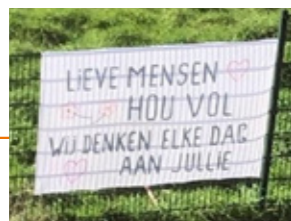 LIEVE MENSEN
HOU VOL
WIJ DENKEN ELKE DAG
AAN JULLIE